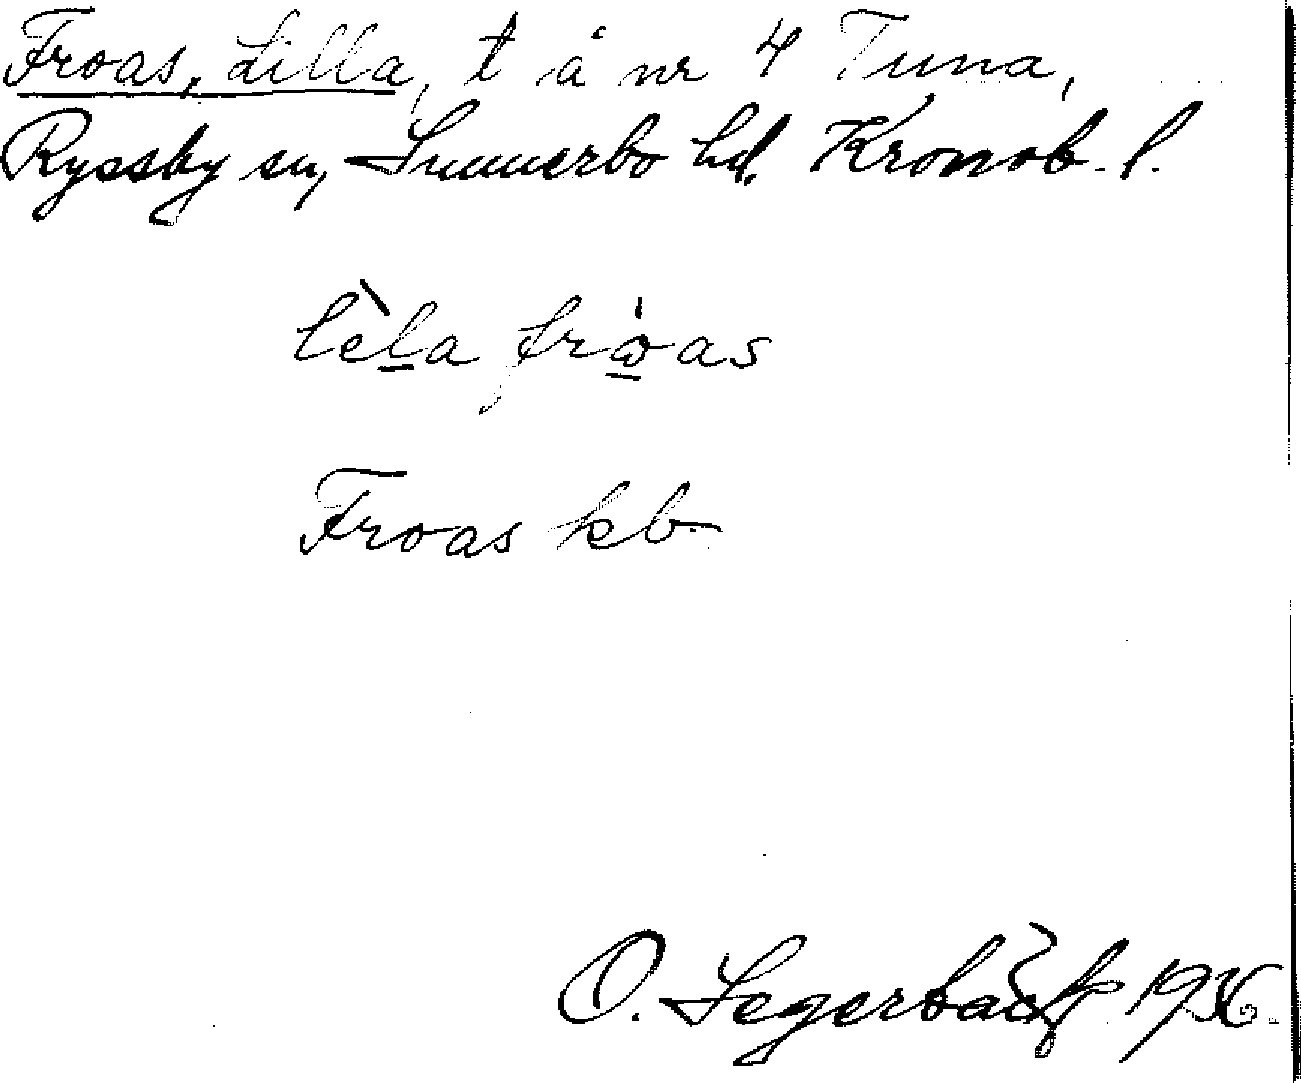 Froas, Lilla, t å nr 4 Tuna,
Ryssby sn, Sunnerbo hd. Kronob. l.
lèla fròas
Froas kb
O. Segerbäck 1936.